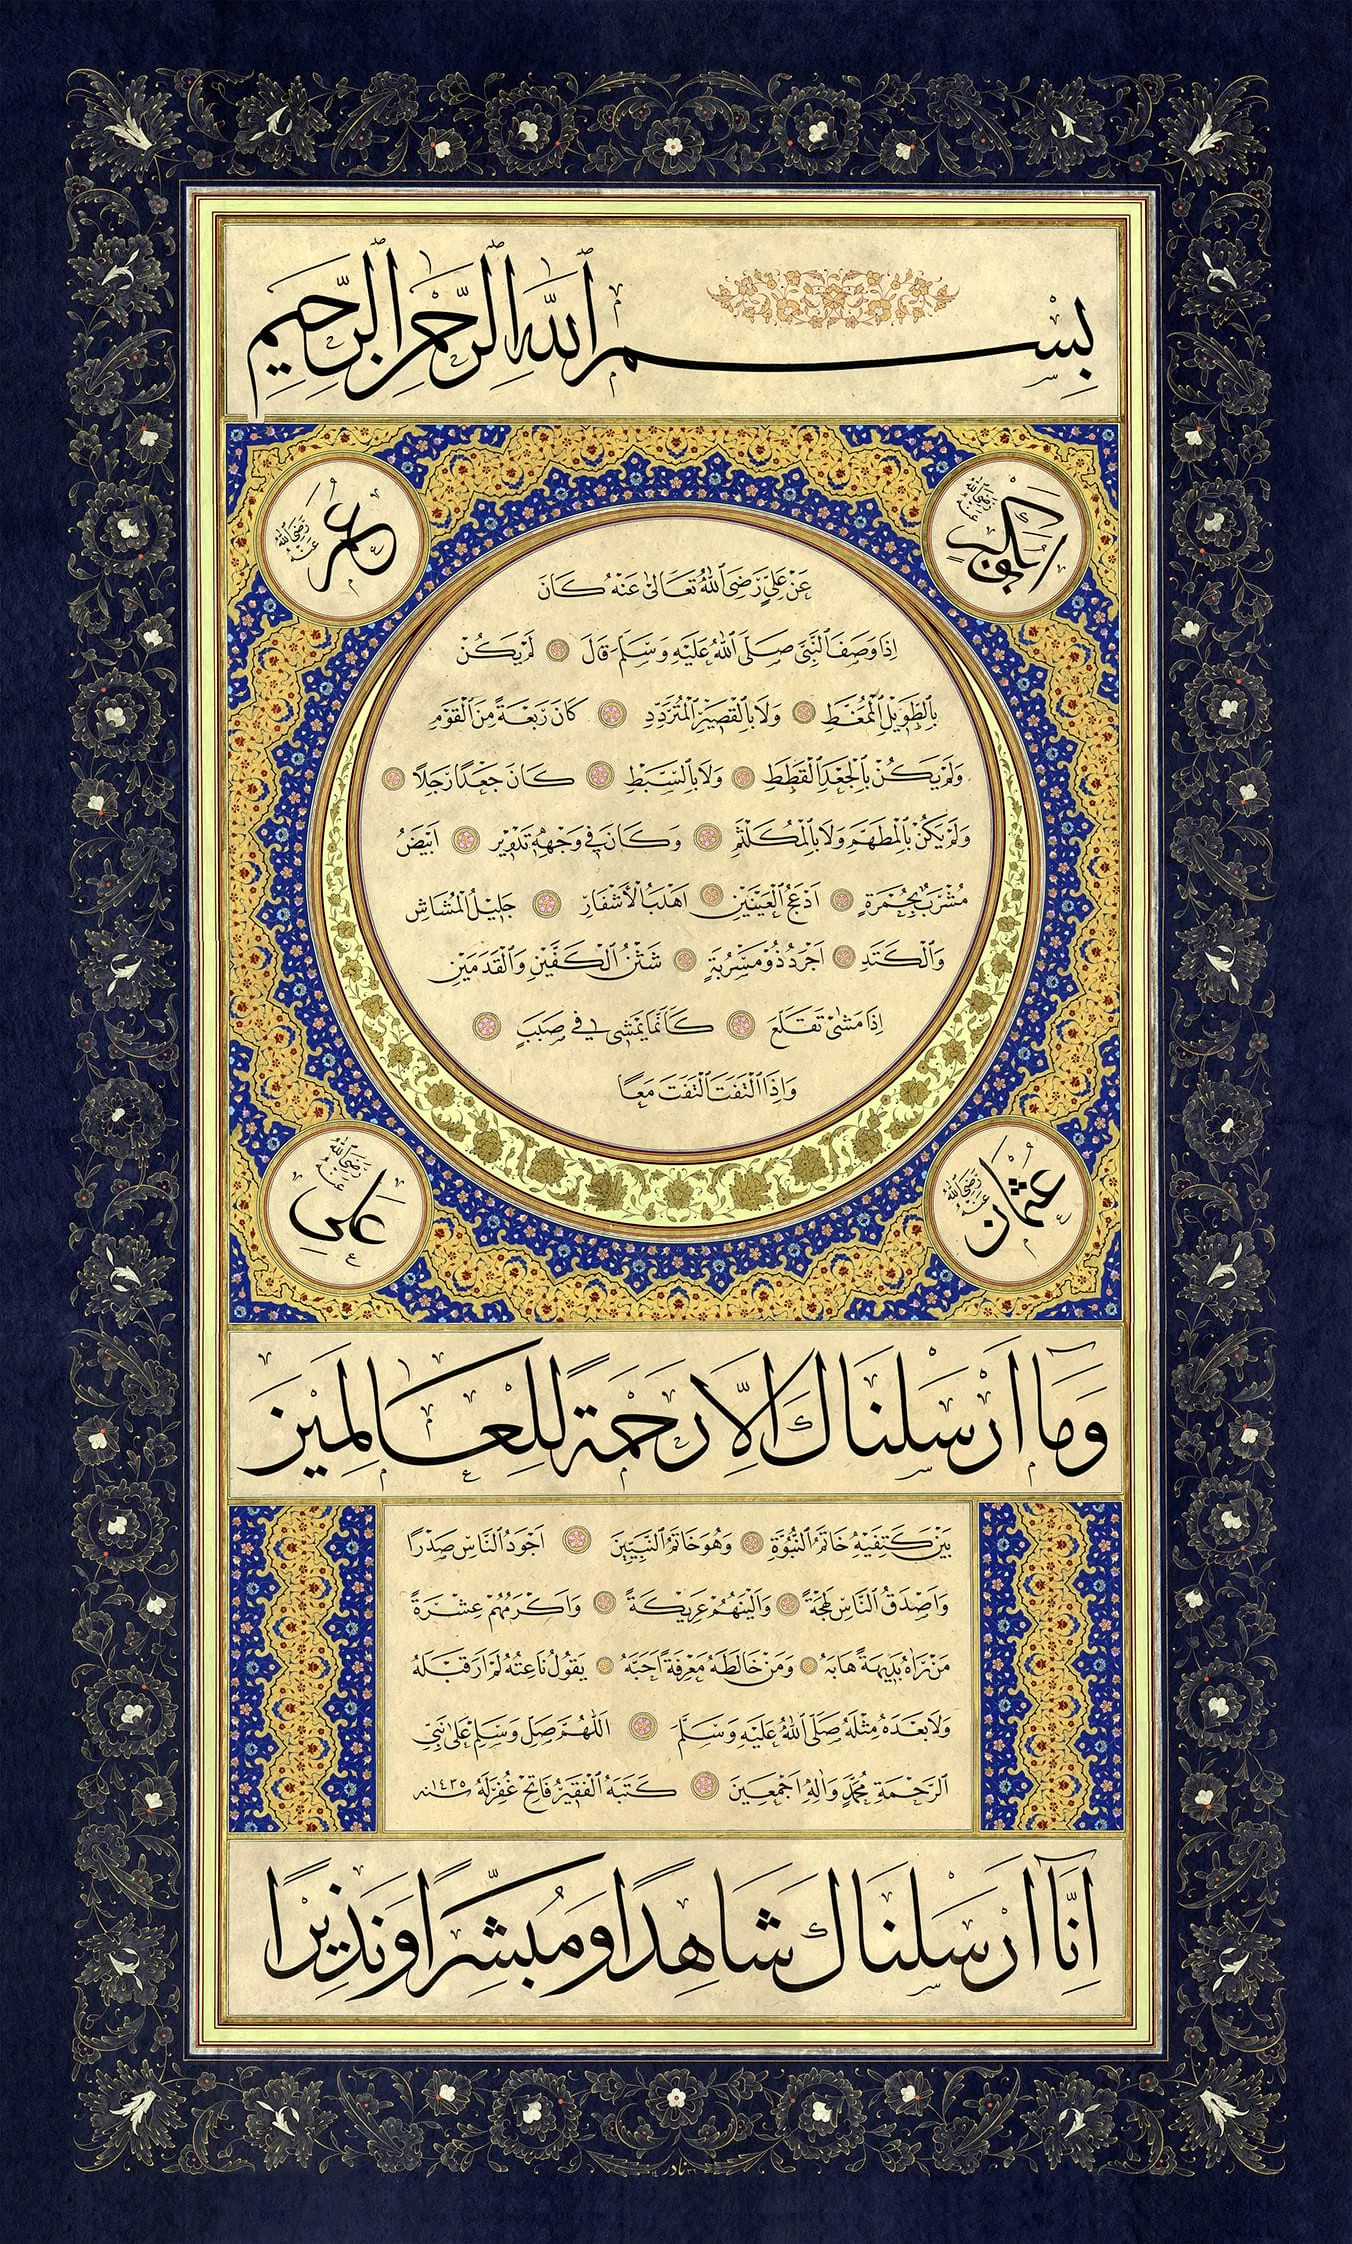 بِسْمِ اللّٰهِ الرَّحْمٰنِ الرَّحِيمِ
ابوبكر رَضِيَ اللّٰهُ عَنْهُ
عُمَر رَضِيَ اللّٰهُ عَنْهُ
عَنْ عَلِيٍّ رَضِيَ اللّٰهُ تَعَالٰى عَنْهُ كَانَ
اِذَا وَصَفَ النَّبِيَّ صَلَّى اللّٰهُ عَلَيْهِ وَسَلَّمَ قَالَ لَمْ يَكُنْ
بِالطَّوِيْلِ الْمُمَّغِطِ وَلَا بِالْقَصِيْرِ الْمُتَرَدِّدِ كَانَ رَبْعَةً مِنَ الْقَوْمِ
وَلَمْ يَكُنْ بِالْجَعْدِ الْقَطَطِ وَلَا بِالسَّبْطِ كَانَ جَعْدًا رَجِلًا
وَلَمْ يَكُنْ بِالْمُطَهَّمِ وَلَا بِالْمُكَلْثَمِ وَكَانَ فِي وَجْهِهِ تَدْوِيْر اَبْيَضُ
مُشْرَبٌ بِحُمْرَةٍ اَدْعَجُ الْعَيْنَيْنِ اَهْدَبُ الْاَشْفَارِ جَلِيْلُ الْمُشَاشِ
وَالْكَتَدِ اَجْرَدُ ذُوْ مَسْرُبَةٍ شَثْنُ الْكَفَّيْنِ وَالْقَدَمَيْنِ
اِذَا مَشٰى تَقَلَّعَ كَاَنَّمَا يَمْشِي فِي صَبَبٍ
وَاِذَا الْتَفَتَ الْتَفَتَ مَعًا
عُثْمَان رَضِيَ اللّٰهُ عَنْهُ
عَلِي رَضِيَ اللّٰهُ عَنْهُ
وَمَا اَرْسَلْنَاكَ اِلَّا رَحْمَةً لِلْعَالَمِيْنَ
بَيْنَ كَتِفَيْهِ خَاتَمُ النُّبُوَّةِ وَهُوَ خَاتَمُ النَّبِيِّيْنَ اَجْوَدُ النَّاسِ صَدْرًا
وَاَصْدَقُ النَّاسِ لَهْجَةً وَاَلْيَنُهُمْ عَرِيْكَةً وَاَكْرَمُهُمْ عِشْرَةً
مَنْ رَاٰهُ بَدِيْهَةً هَابَهُ وَمَنْ خَالَطَهُ مَعْرِفَةً اَحَبَّهُ يَقُوْلُ نَاعِتُهُ لَمْ اَرَ قَبْلَهُ
وَلَا بَعْدَهُ مِثْلَهُ صَلَّى اللّٰهُ عَلَيْهِ وَسَلَّمَ اَللّٰهُمَّ صَلِّ وَسَلِّمْ عَلٰى نَبِيِّ
الرَّحْمَةِ مُحَمَّدٍ وَاٰلِهِ اَجْمَعِيْنَ كَتَبَهُ الْفَقِيْرُ فَاتِحْ غُفِرَلَهُ سنه ١٤٣٥
اِنَّا اَرْسَلْنَاكَ شَاهِدًا وَمُبَشِّرًا وَنَذِيْرًا